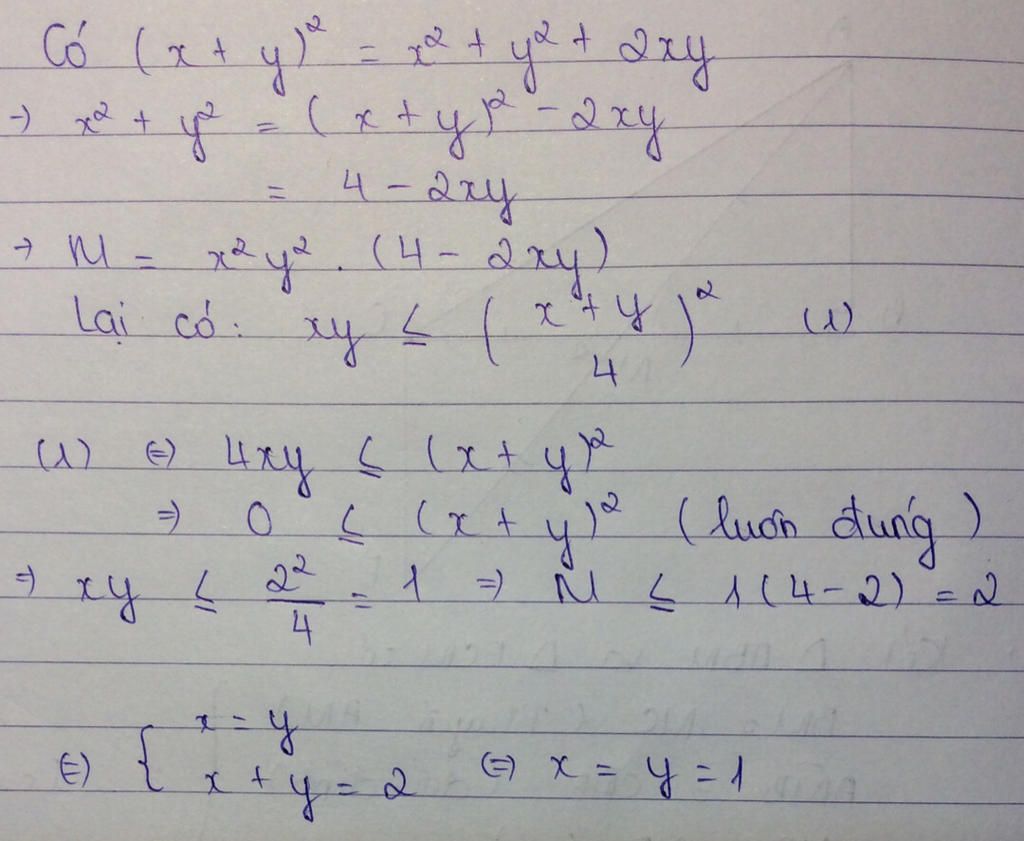 Có (x + y)² = x² + y² + 2xy
→ x² + y² = (x + y)² - 2xy
= 4 - 2xy
→ M = x²y² . (4 - 2xy)
Lại có: xy ≤ (x + y / 4)² (1)
(1) ⇔ 4xy ≤ (x + y)²
⇒ 0 ≤ (x + y)² (luôn đúng)
⇒ xy ≤ 2²/4 = 1 ⇒ M ≤ 1(4 - 2) = 2
⇔ { x = y
x + y = 2 ⇔ x = y = 1